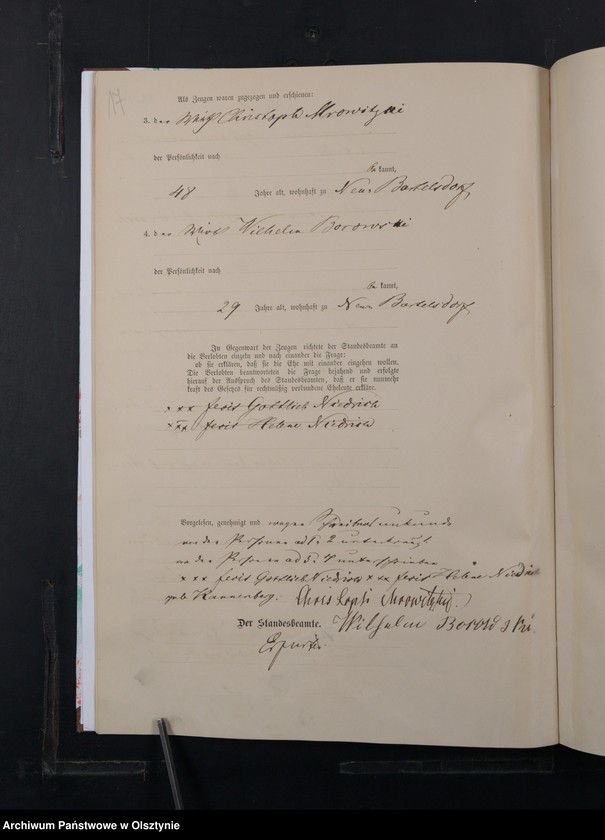 Als Zeugen waren zugezogen und erschienen:
3. der Wirth Christoph Mrowitzki
der Persönlichkeit nach
be kannt,
48 Jahre alt, wohnhaft zu Neu Bartelsdorf
4. der Wirth Wilhelm Borowski
der Persönlichkeit nach
be kannt,
29 Jahre alt, wohnhaft zu Neu Bartelsdorf
In Gegenwart der Zeugen richtete der Standesbeamte an
die Verlobten einzeln und nach einander die Frage:
ob sie erklären, daß sie die Ehe mit einander eingehen wollen.
Die Verlobten beantworteten die Frage bejahend und erfolgte
hierauf der Ausspruch des Standesbeamten, daß er sie nunmehr
kraft des Gesetzes für rechtmäßig verbundene Eheleute erkläre.
xxx Gottlieb Niedrich
xxx Helene Niedrich
Vorgelesen, genehmigt und wegen
von den Personen ad 1. 2 unterkreuzt
von den Personen ad 3. 4 unterschrieben
xxx Gottlieb Niedrich xxx Helene
geb. Kannenberg. Mrowitzki.
Der Standesbeamte. Wilhelm Borowski.
Archiwum Państwowe w Olsztynie